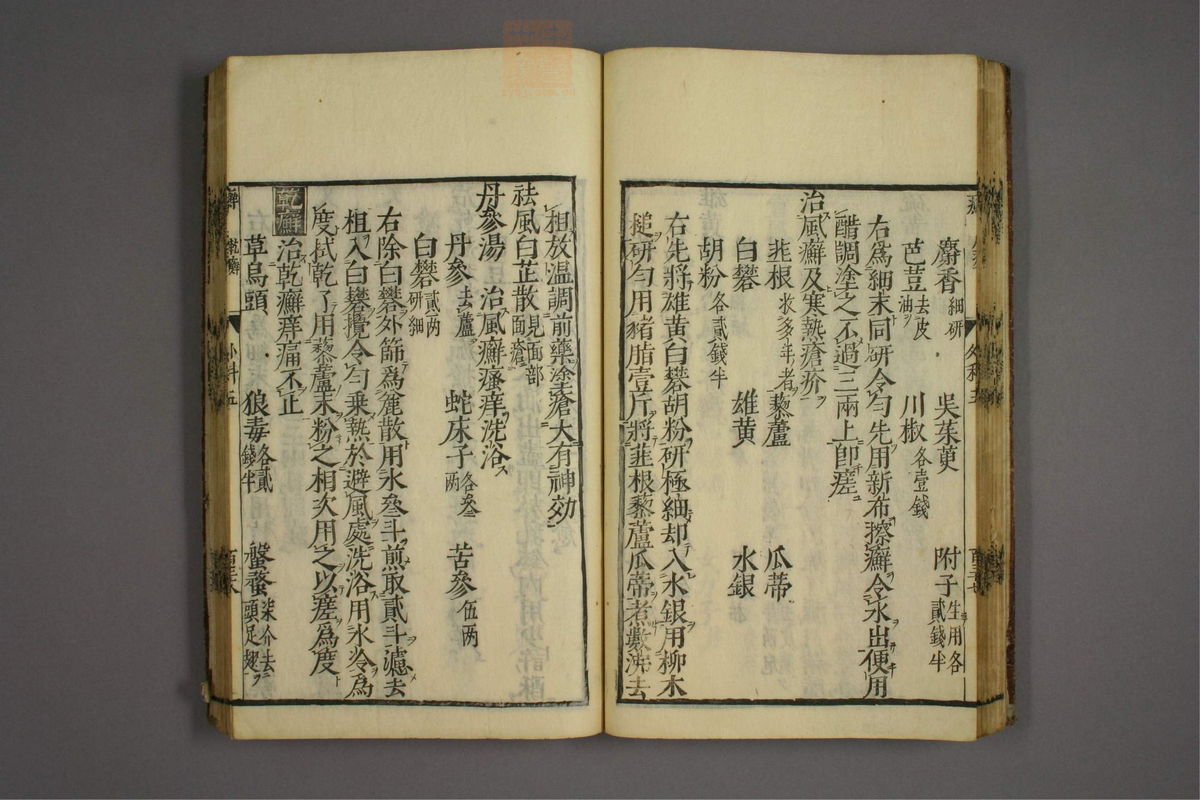 麝香細研　吳茱萸　附子生用各貳錢半
芭荳去皮油　川椒各壹錢
右爲細末同研令勻先用新布擦癬令水出便用
醋調塗之不過三兩上卽瘥
治風癬及寒熱瘡疥
韭根收多年者　藜蘆　瓜蒂
白礬　雄黃　水銀
胡粉各貳錢半
右先將雄黃白礬胡粉研極細却入水銀用柳木
搥研勻用豬脂壹斤將韭根藜蘆瓜蒂煮數沸去
相放温調前藥塗瘡大有神効
祛風白芷散見面部面瘡
丹參湯　治風癬瘙痒洗浴
丹參去蘆　蛇床子各叁两　苦參伍两
白礬貳两研細
右除白礬外篩爲麄散用水叁斗煎取貳斗濾去
柤入白礬攪令勻乗熱於避風處洗浴用水冷爲
度拭乾了用藜蘆末粉之相次用之以瘥爲度
乾癬
治乾癬痒痛不止
草烏頭　狼毒各貳錢半　盤蝥柒个去頭足翅
癬　乾癬　外科五